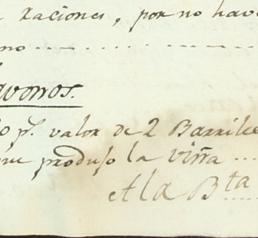 raciones, por no hav
no
avonos.
o p.r valor de 2 Barrile
que produjo la viña
A la B.ta